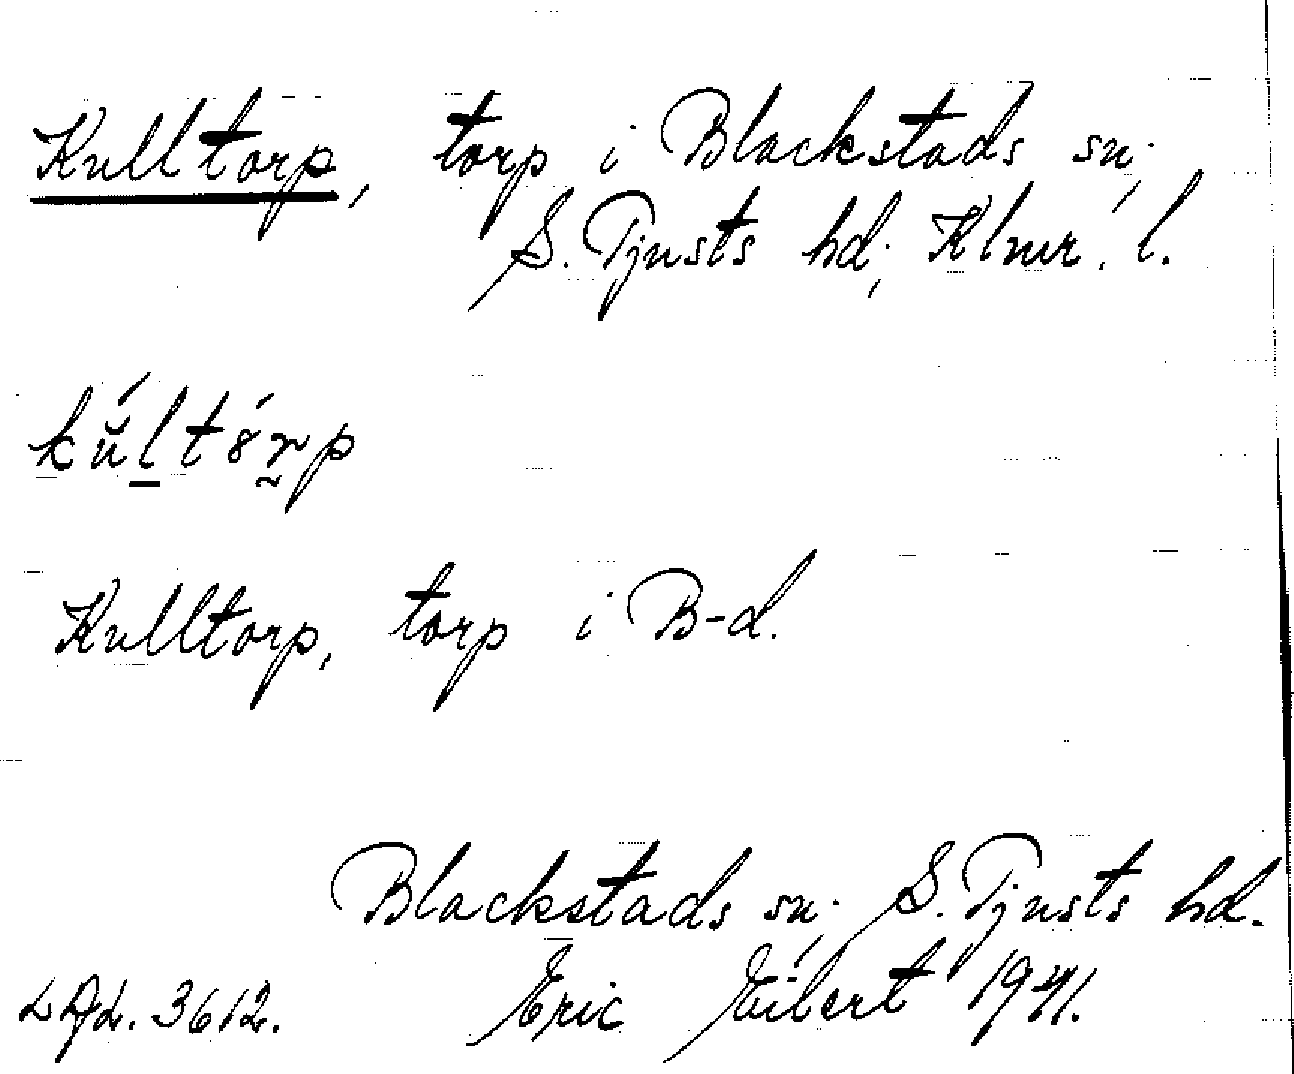 Kulltorp, torp i Blackstads sn.,
S. Tjusts hd., Klmr. l.
kŭ́ltó̆rp
Kulltorp, torp i B-d.
Blackstads sn., S. Tjusts hd.
3612. Eric Eilert 1941.